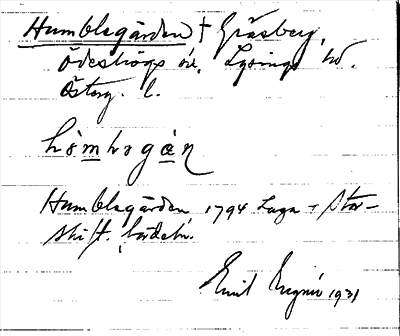 Humblegården + Gräsberg,
Ödeshögs sn, Lysings hd.
Österg. l.
Humblegården, 1794 Laga + Stor-
skift.
Emil 1931